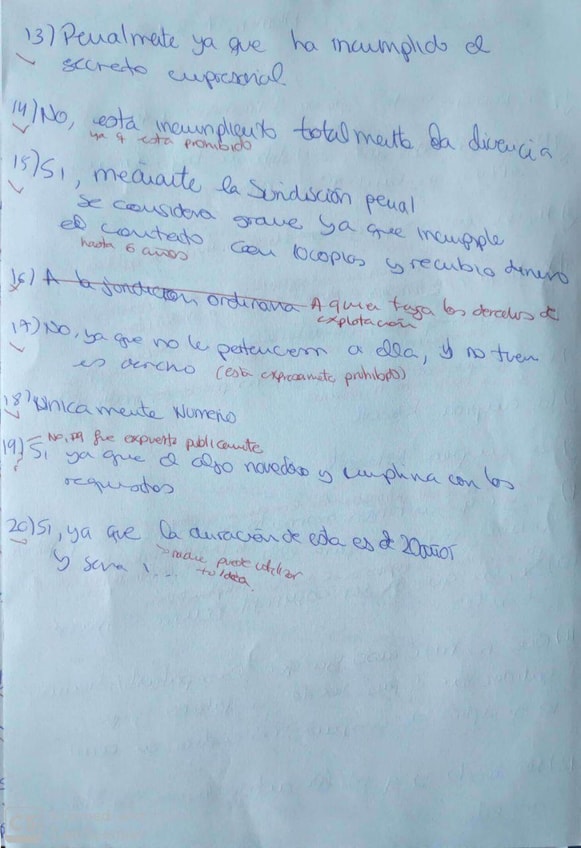 13) Penalmate ya que ha incumplido el
secreto empresarial
14) No, está incumpliento totalmente la divencia
ya q está prohibido
15) Si, mediante la jundisción penal
se considera grave ya que incumple
el contrato con 10 copias y recibio dinero
hasta 6 años
16) A la jondiccion ordinaria A quien tenga los derechos de
explotación
17) No, ya que no le pertenecen a ella, y no tuen
es derecho (está expresamente prohibido)
18) Unicamente Numeño
No, ya fue expuesto publicamente
19) Si ya que el algo novedoso y cumpliria con los
requisitos
20) Si, ya que la duración de esta es de 20 años
y sera 1....
nadie puede utilizar
tu idea.